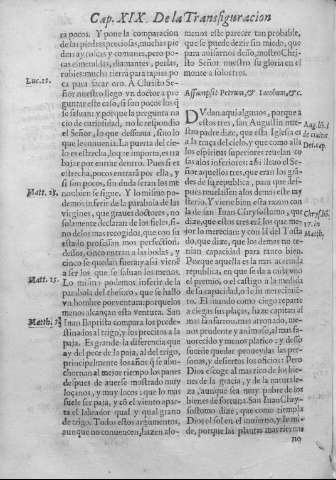 Cap. XIX. De la Transfiguracion
ra pocos. Y pone la comparacion
de las piedras preciosas, muchas pie
dras ay toscas y comunes, pero pocas
esmeraldas, diamantes, perlas,
rubies: mucha tierra para tapias po
ca para sacar oro. A Christo Se
Luc. 13.
ñor nuestro llego vn doctor a pre
guntar este caso, si son pocos los q̃
se saluan: y porque la pregunta na
cio de curiosidad, no le respondio
el Señor, lo que dessaua, sino lo
que le conuenia. La puerta del cie-
lo es estrecha, los q̃ importa, es tra
bajar por entrar dentro. Pues si es
estrecha, pocos entrarã por ella, y
si son pocos, sin duda seran los me
Matt. 25.
nos los que se sigue. Y lo mismo po-
demos inferir de la parabola de las
virgines, que graues doctores, no
solamente declaran de los fieles, si
no de los mas recogidos, que con su
estado professan mas perfection.
dellos, cinco entran a las bodas, y
cinco se quedan fuera: y assi vienē
a ser los que se saluan los menos.
Matt. 25.
Lo mismo podemos inferir de la
parabola del thesoro, que le hallo
vn hombre por ventura: porque los
menos alcançan esta ventura. San
Matth. 3.
Iuan Baptista compara los predes
tinados al trigo, y los precitos a la
paja. Es grande la diferencia que
ay del peco de la paja, al del trigo,
principalmente los años q̃ se aho-
chornan al mejor tiempo los panes
despues de auerse mostrado muy
loçanos, y muy locos: que lo mas
suele ser paja, y cõ el viento apar-
ta el labrador qual y qual grano
de trigo. Todos estos argumentos,
aunque no conuencen, hazen alo-
menos este parecer tan probable,
que se puede dezir sin miedo, que
para auisarnos dessto, mostro Chri-
sto Señor nuestro su gloria en el
monte a solos tres.
Assumpsit Petrum, & Iacobum, &c.
DVdan aqui algunos, porque a
estos tres, san Augustin nue-
Aug. lib. 1
stro padre dize, que esta Iglesia es
de ciuitat.
a la traça del cielo, y que como alla
Dei. cap.
los espiritus superiores reuelan co
sas alos inferiores: assi lleuo el Se-
ñor aquellos tres, que eran los grã-
des de la republica, para que des-
pues reuelassen a los demas este my
sterio. Y viene bien esta razon con
la de san Iuan Chrysostomo, que
Chrys. lib.
dize, que estos tres eran los que me-
17. in
jor lo merecian: y con la del Tosta
Matth.
do, que dize, que los demas no te-
nian capacidad para tanto bien.
Porque aquella es la mas acertada
republica, en que se da a cada vno
el premio, o el castigo a la medida
de su capacidad, o de su merecimiē-
to. El mundo como ciego reparte
a ciegas sus plaças, haze capitan al
mas fanfarron, mas arrojado, me-
nos prudente y animoso, al mas fa-
uorecido y menos platico: y desso
suerte quedar por proueydas las pre-
uencias, y desiertos los oficios: Pero
Dios escoge al mas rico de los bie-
nes de la gracia, y de la naturale-
za, aunque sea muy pobre de los
bienes de fortuna. San Iuan Chry-
sostomo dize, que como tiempla
Dios el sol en el inuierno, y le mi-
de, porque las plantas mas tiernas
no